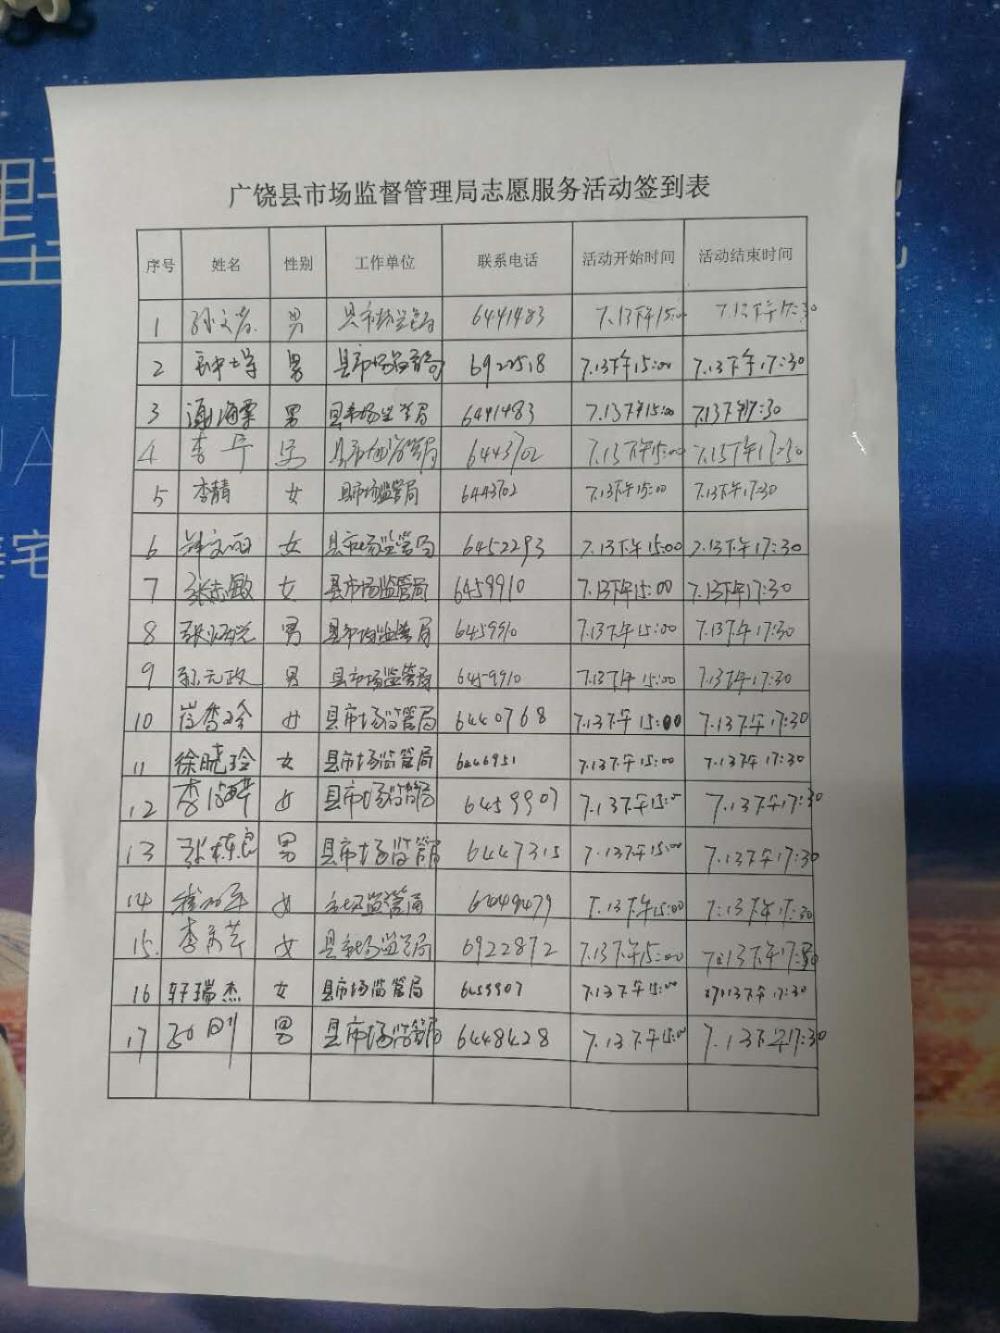 广饶县市场监督管理局志愿服务活动签到表
序号 姓名 性别 工作单位 联系电话 活动开始时间 活动结束时间
1 男 县市场监管局 6441483 7.13下午15:00 7.13下午17:30
2 男 县市场监管局 6922518 7.13下午15:00 7.13下午17:30
3 男 县市场监管局 6441483 7.13下午15:00 7.13下午17:30
4 李 县市场监管局 6443702 7.13下午15:00 7.13下午17:30
5 李靖 女 县市场监管局 6443702 7.13下午15:00 7.13下午17:30
6 女 县市场监管局 6452293 7.13下午15:00 7.13下午17:30
7 张志敏 女 县市场监管局 6459910 7.13下午15:00 7.13下午17:30
8 男 县市场监管局 6459910 7.13下午15:00 7.13下午17:30
9 元政 男 县市场监管局 6459910 7.13下午15:00 7.13下午17:30
10 女 县市场监管局 6440768 7.13下午15:00 7.13下午17:30
11 徐晓玲 女 县市场监管局 6446951 7.13下午15:00 7.13下午17:30
12 李海萍 女 县市场监管局 6459907 7.13下午15:0 7.13下午17:30
13 张栋良 男 县市场监管局 6447315 7.13下午15:00 7.13下午17:30
14 女 市场监管局 7.13下午15:00 7.13下午17:30
15. 李 女 县市场监管局 6922872 7.13下午15:00 7.13下午17:30
16 轩瑞杰 女 县市场监管局 6459907 7.13下午15:00 7.13下午17:30
17 男 县市场监管局 6448428 7.13下午15:00 7.13下午17:30